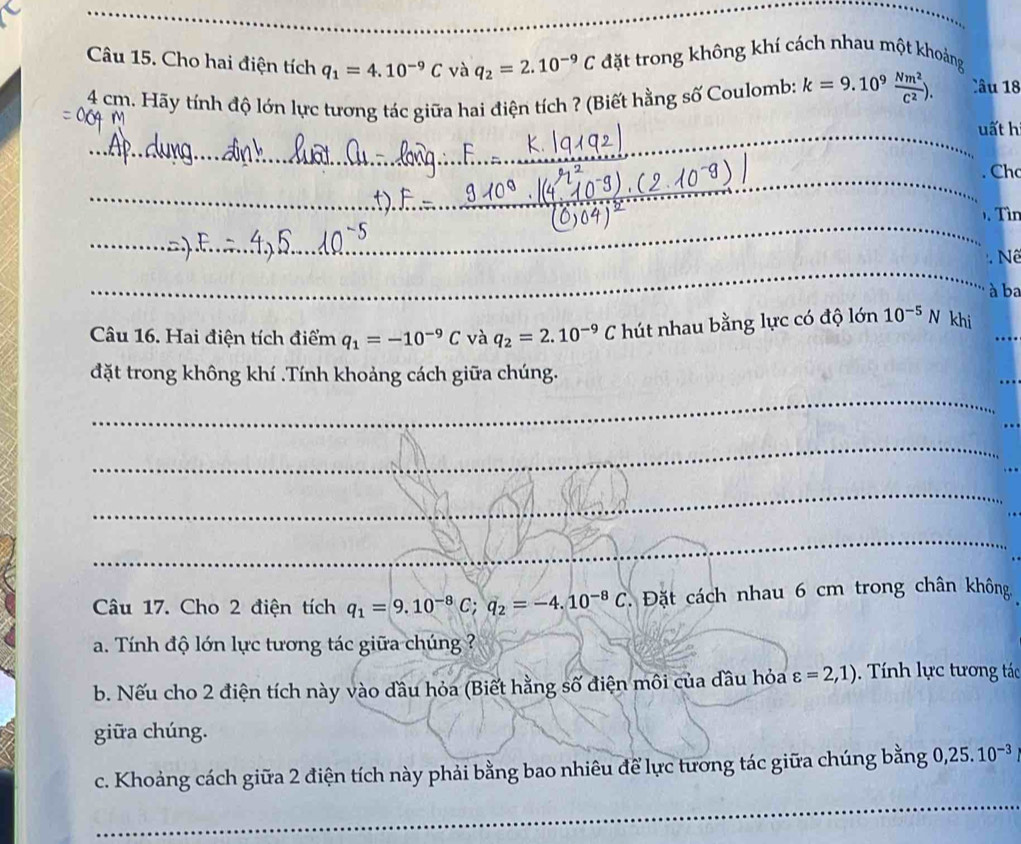 Câu 15. Cho hai điện tích q₁ = 4. 10⁻⁹ C và q₂ = 2. 10⁻⁹ C đặt trong không khí cách nhau một khoảng
4 cm. Hãy tính độ lớn lực tương tác giữa hai điện tích ? (Biết hằng số Coulomb: k = 9. 10⁹ Nm²/C²).
Câu 18
= 0,04 M
uất h
Áp dụng định luật Cu - lông : F = K. |q1q2| / r²
. Cho
+) F = 9.10⁹ . |(4.10⁻⁹) . (2.10⁻⁹)| / (0,04)²
. Tìn
=) F = 4,5 10⁻⁵
. Nế
à ba
Câu 16. Hai điện tích điểm q₁ = −10⁻⁹ C và q₂ = 2. 10⁻⁹ C hút nhau bằng lực có độ lớn 10⁻⁵ N khi
đặt trong không khí .Tính khoảng cách giữa chúng.
Câu 17. Cho 2 điện tích q₁ = 9. 10⁻⁸ C; q₂ = −4. 10⁻⁸ C. Đặt cách nhau 6 cm trong chân không.
a. Tính độ lớn lực tương tác giữa chúng ?
b. Nếu cho 2 điện tích này vào dầu hỏa (Biết hằng số điện môi của dầu hỏa ε = 2,1). Tính lực tương tác
giữa chúng.
c. Khoảng cách giữa 2 điện tích này phải bằng bao nhiêu để lực tương tác giữa chúng bằng 0,25. 10⁻³